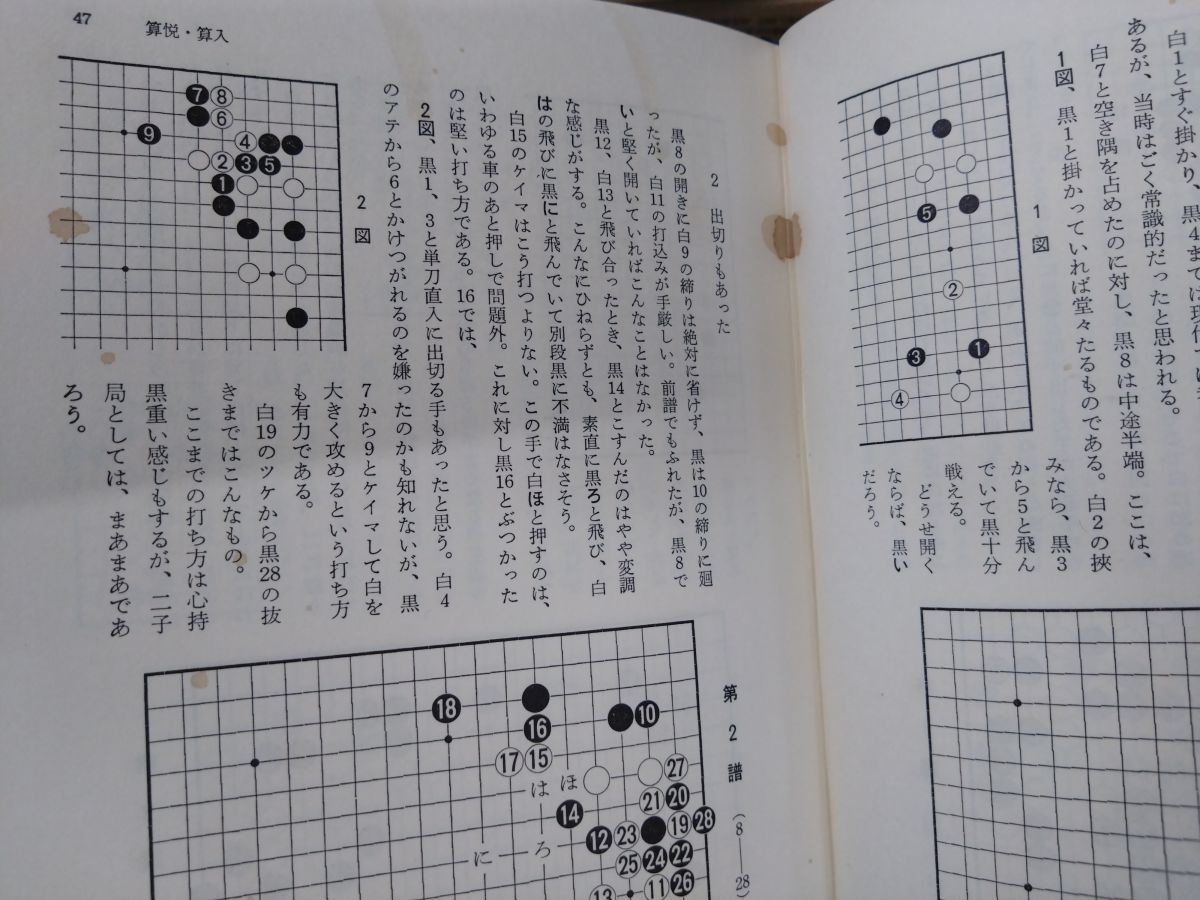 白1とすぐ掛かり、黒4までは現代では
あるが、当時はごく常識的だったと思われる。
白7と空き隅を占めたのに対し、黒8は中途半端。ここは、
1図、黒1と掛かっていれば堂々たるものである。白2の挾
みなら、黒3
から5と飛ん
でいて黒十分
戦える。
どうせ開く
ならば、黒い
だろう。
1図
5
2
3
1
4
47
算悦・算入
2 出切りもあった
黒8の開きに白9の締りは絶対に省けず、黒は10の締りに廻
ったが、白11の打込みが手厳しい。前譜でもふれたが、黒8で
いと堅く開いていればこんなことはなかった。
黒12、白13と飛び合ったとき、黒14とこすんだのはやや変調
な感じがする。こんなにひねらずとも、素直に黒ろと飛び、白
はの飛びに黒にと飛んでいて別段黒に不満はなさそう。
白15のケイマはこう打つよりない。この手で白ほと押すのは、
いわゆる車のあと押しで問題外。これに対し黒16とぶつかった
のは堅い打ち方である。16では、
2図、黒1、3と単刀直入に出切る手もあったと思う。白4
のアテから6とかけつがれるのを嫌ったのかも知れないが、黒
7から9とケイマして白を
大きく攻めるという打ち方
も有力である。
白19のツケから黒28の抜
きまではこんなもの。
ここまでの打ち方は心持
黒重い感じもするが、二子
局としては、まあまあであ
ろう。
2図
7 8
6
9
4
2 3 5
1
第2譜 (8—28)
18
16 10
17 15
は ほ
27
14
21 20
12 23 19 28
に ろ
25 24 22
13 11 26